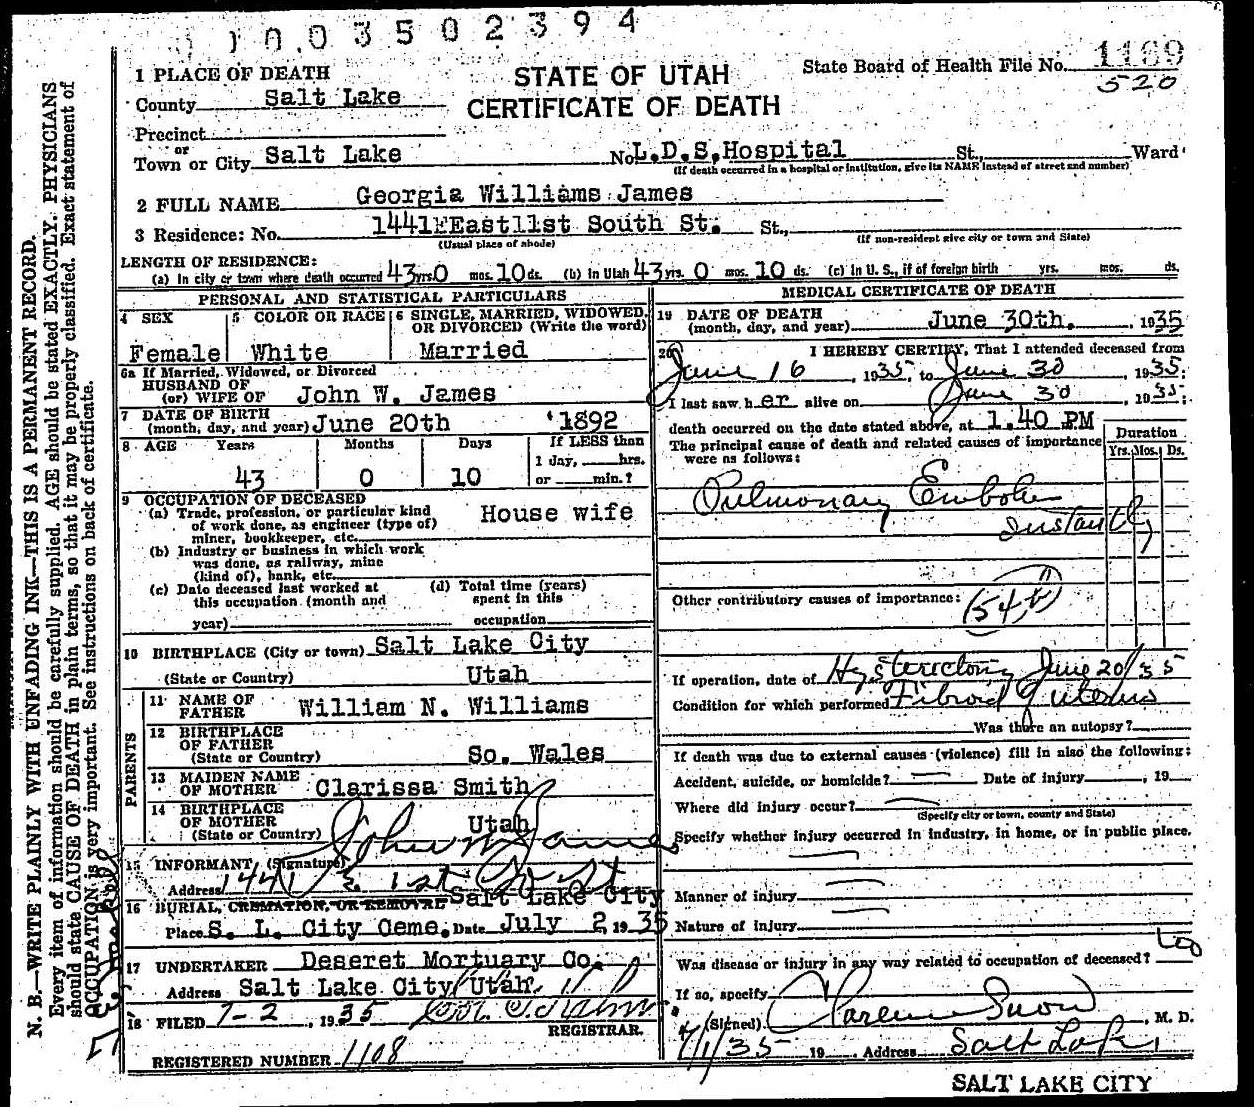 1003502394
1 PLACE OF DEATH
STATE OF UTAH
CERTIFICATE OF DEATH
State Board of Health File No. 1189
520
County Salt Lake
Precinct
or
Town or City Salt Lake No. L.D.S. Hospital St., Ward
(If death occurred in a hospital or institution, give its NAME instead of street and number)
2 FULL NAME Georgia Williams James
3 Residence: No. 1441 East 1st South St. St.,
(Usual place of abode) (If non-resident give city or town and State)
LENGTH OF RESIDENCE:
(a) In city or town where death occurred 43 yrs. 0 mos. 10 ds. (b) In Utah 43 yrs. 0 mos. 10 ds. (c) In U. S., if of foreign birth yrs. mos. ds.
PERSONAL AND STATISTICAL PARTICULARS
4 SEX Female
5 COLOR OR RACE White
6 SINGLE, MARRIED, WIDOWED,
OR DIVORCED (Write the word)
Married
6a If Married, Widowed, or Divorced
HUSBAND OF
(or) WIFE OF John W. James
7 DATE OF BIRTH
(month, day, and year) June 20th 1892
8 AGE Years Months Days If LESS than
1 day, hrs.
43 0 10 or min.?
9 OCCUPATION OF DECEASED
(a) Trade, profession, or particular kind
of work done, as engineer (type of)
miner, bookkeeper, etc. House wife
(b) Industry or business in which work
was done, as railway, mine
(kind of), bank, etc.
(c) Date deceased last worked at
this occupation (month and
year)
(d) Total time (years)
spent in this
occupation
10 BIRTHPLACE (City or town) Salt Lake City
(State or Country) Utah
PARENTS
11 NAME OF
FATHER William N. Williams
12 BIRTHPLACE
OF FATHER
(State or Country) So. Wales
13 MAIDEN NAME
OF MOTHER Clarissa Smith
14 BIRTHPLACE
OF MOTHER
(State or Country) Utah
15 INFORMANT (Signature) John W James
Address 1441 E 1st So St
Salt Lake City
16 BURIAL, CREMATION, OR REMOVAL
Place S. L. City Ceme. Date July 2, 1935
17 UNDERTAKER Deseret Mortuary Co.
Address Salt Lake City, Utah.
18 FILED 7-2, 1935
REGISTRAR.
REGISTERED NUMBER 1108
MEDICAL CERTIFICATE OF DEATH
19 DATE OF DEATH
(month, day, and year) June 30th. , 1935
20 I HEREBY CERTIFY, That I attended deceased from
June 16, 1935, to June 30 1935;
I last saw her alive on June 30, 1935;
death occurred on the date stated above, at 1.40 PM
The principal cause of death and related causes of importance
were as follows:
Duration
Yrs. Mos. Ds.
Pulmonary Embolus
instantly
Other contributory causes of importance:
54b
If operation, date of Hysterectomy June 20/35
Condition for which performed Fibroid Uterus
Was there an autopsy?
If death was due to external causes (violence) fill in also the following:
Accident, suicide, or homicide? Date of injury , 19
Where did injury occur?
(Specify city or town, county and State)
Specify whether injury occurred in industry, in home, or in public place.
Manner of injury
Nature of injury
Was disease or injury in any way related to occupation of deceased?
If so, specify
(Signed) Clarence Snow, M. D.
7/1/35 19 Address Salt Lake
SALT LAKE CITY
N. B.—WRITE PLAINLY WITH UNFADING INK—THIS IS A PERMANENT RECORD.
Every item of information should be carefully supplied. AGE should be stated EXACTLY. PHYSICIANS
should state CAUSE OF DEATH in plain terms, so that it may be properly classified. Exact statement of
OCCUPATION is very important. See instructions on back of certificate.